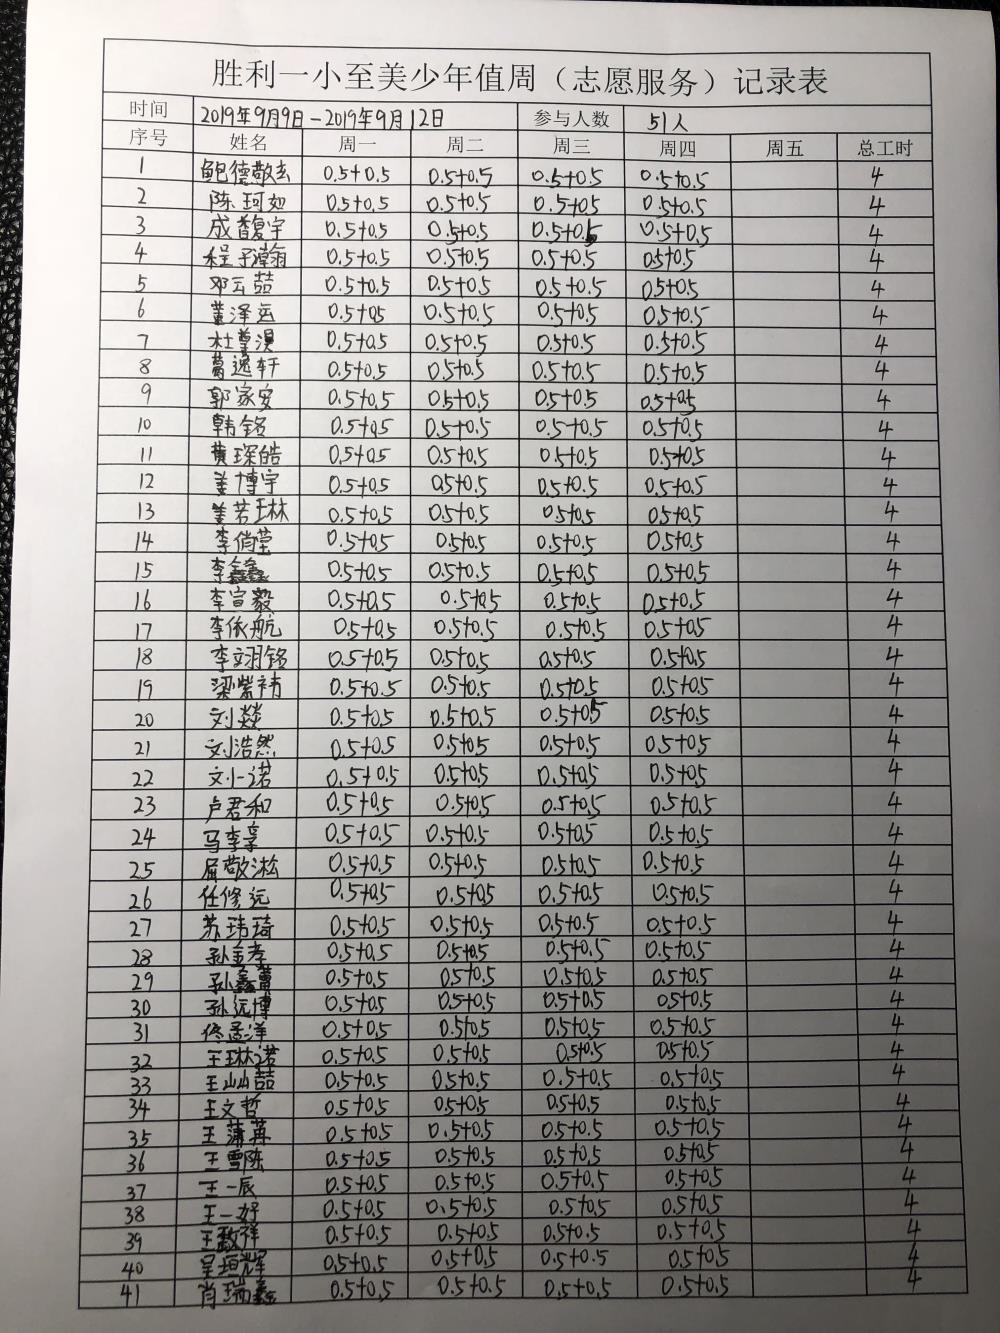 胜利一小至美少年值周（志愿服务）记录表
时间 2019年9月9日-2019年9月12日 参与人数 51人
序号 姓名 周一 周二 周三 周四 周五 总工时
1 鲍德敬玄 0.5+0.5 0.5+0.5 0.5+0.5 0.5+0.5 4
2 陈珂如 0.5+0.5 0.5+0.5 0.5+0.5 0.5+0.5 4
3 成馥宇 0.5+0.5 0.5+0.5 0.5+0.5 0.5+0.5 4
4 程子瀚 0.5+0.5 0.5+0.5 0.5+0.5 0.5+0.5 4
5 邓云喆 0.5+0.5 0.5+0.5 0.5+0.5 0.5+0.5 4
6 董泽运 0.5+0.5 0.5+0.5 0.5+0.5 0.5+0.5 4
7 0.5+0.5 0.5+0.5 0.5+0.5 0.5+0.5 4
8 葛逸轩 0.5+0.5 0.5+0.5 0.5+0.5 0.5+0.5 4
9 郭家安 0.5+0.5 0.5+0.5 0.5+0.5 0.5+0.5 4
10 韩铭 0.5+0.5 0.5+0.5 0.5+0.5 0.5+0.5 4
11 黄琛皓 0.5+0.5 0.5+0.5 0.5+0.5 0.5+0.5 4
12 姜博宇 0.5+0.5 0.5+0.5 0.5+0.5 0.5+0.5 4
13 姜若琳 0.5+0.5 0.5+0.5 0.5+0.5 0.5+0.5 4
14 李俏莹 0.5+0.5 0.5+0.5 0.5+0.5 0.5+0.5 4
15 李鑫鑫 0.5+0.5 0.5+0.5 0.5+0.5 0.5+0.5 4
16 李宣毅 0.5+0.5 0.5+0.5 0.5+0.5 0.5+0.5 4
17 李依航 0.5+0.5 0.5+0.5 0.5+0.5 0.5+0.5 4
18 李翊铭 0.5+0.5 0.5+0.5 0.5+0.5 0.5+0.5 4
19 梁紫祎 0.5+0.5 0.5+0.5 0.5+0.5 0.5+0.5 4
20 刘燚 0.5+0.5 0.5+0.5 0.5+0.5 0.5+0.5 4
21 刘浩然 0.5+0.5 0.5+0.5 0.5+0.5 0.5+0.5 4
22 刘一诺 0.5+0.5 0.5+0.5 0.5+0.5 0.5+0.5 4
23 卢君和 0.5+0.5 0.5+0.5 0.5+0.5 0.5+0.5 4
24 马李享 0.5+0.5 0.5+0.5 0.5+0.5 0.5+0.5 4
25 屈敬淞 0.5+0.5 0.5+0.5 0.5+0.5 0.5+0.5 4
26 任修远 0.5+0.5 0.5+0.5 0.5+0.5 0.5+0.5 4
27 苏玮琦 0.5+0.5 0.5+0.5 0.5+0.5 0.5+0.5 4
28 孙金孝 0.5+0.5 0.5+0.5 0.5+0.5 0.5+0.5 4
29 孙鑫蕾 0.5+0.5 0.5+0.5 0.5+0.5 0.5+0.5 4
30 孙远博 0.5+0.5 0.5+0.5 0.5+0.5 0.5+0.5 4
31 佟孟洋 0.5+0.5 0.5+0.5 0.5+0.5 0.5+0.5 4
32 王琳诺 0.5+0.5 0.5+0.5 0.5+0.5 0.5+0.5 4
33 王屾喆 0.5+0.5 0.5+0.5 0.5+0.5 0.5+0.5 4
34 王文哲 0.5+0.5 0.5+0.5 0.5+0.5 0.5+0.5 4
35 王蒲苒 0.5+0.5 0.5+0.5 0.5+0.5 0.5+0.5 4
36 王雪陈 0.5+0.5 0.5+0.5 0.5+0.5 0.5+0.5 4
37 王一辰 0.5+0.5 0.5+0.5 0.5+0.5 0.5+0.5 4
38 王一好 0.5+0.5 0.5+0.5 0.5+0.5 0.5+0.5 4
39 王致祥 0.5+0.5 0.5+0.5 0.5+0.5 0.5+0.5 4
40 吴垣辉 0.5+0.5 0.5+0.5 0.5+0.5 0.5+0.5 4
41 肖瑞鑫 0.5+0.5 0.5+0.5 0.5+0.5 0.5+0.5 4